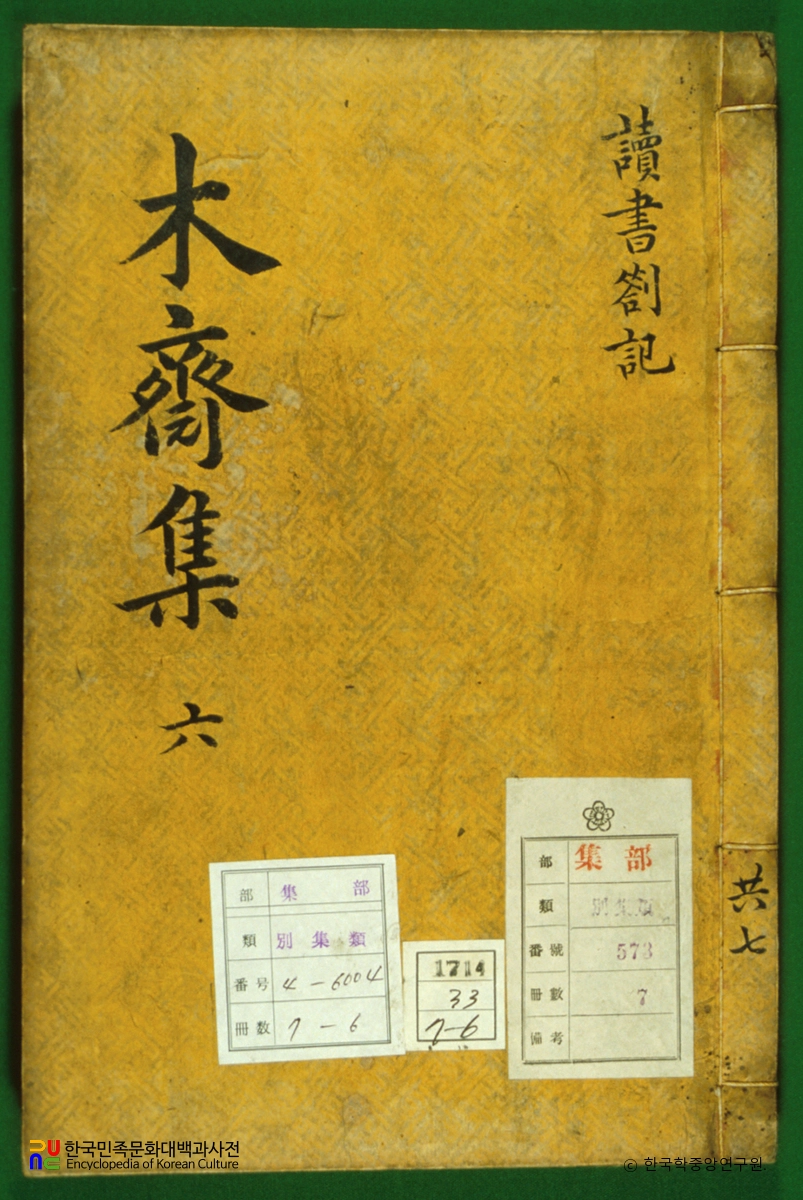 讀書劄記
木齋集 六
共七
部 集部
類 別集類
番号 4-6004
冊数 7-6
1714
33
7-6
部 集部
類 別集類
番號 573
冊數 7
備考
한국민족문화대백과사전
Encyclopedia of Korean Culture
© 한국학중앙연구원